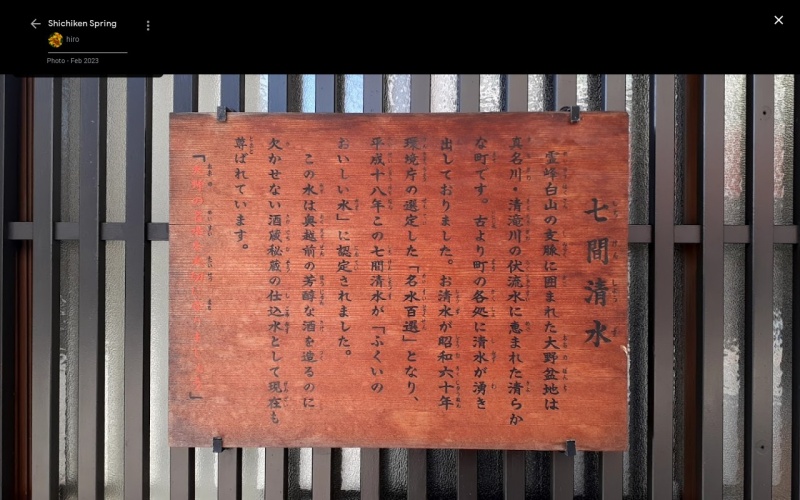 Shichiken Spring
hiro
Photo - Feb 2023
七間清水
霊峰白山の支脈に囲まれた大野盆地は
真名川・清滝川の伏流水に恵まれた清らか
な町です。古より町の各処に清水が湧き
出しておりました。お清水が昭和六十年
環境庁の選定した「名水百選」となり、
平成十八年この七間清水が「ふくいの
おいしい水」に認定されました。
この水は奥越前の芳醇な酒を造るのに
欠かせない酒蔵秘蔵の仕込水として現在も
尊ばれています。